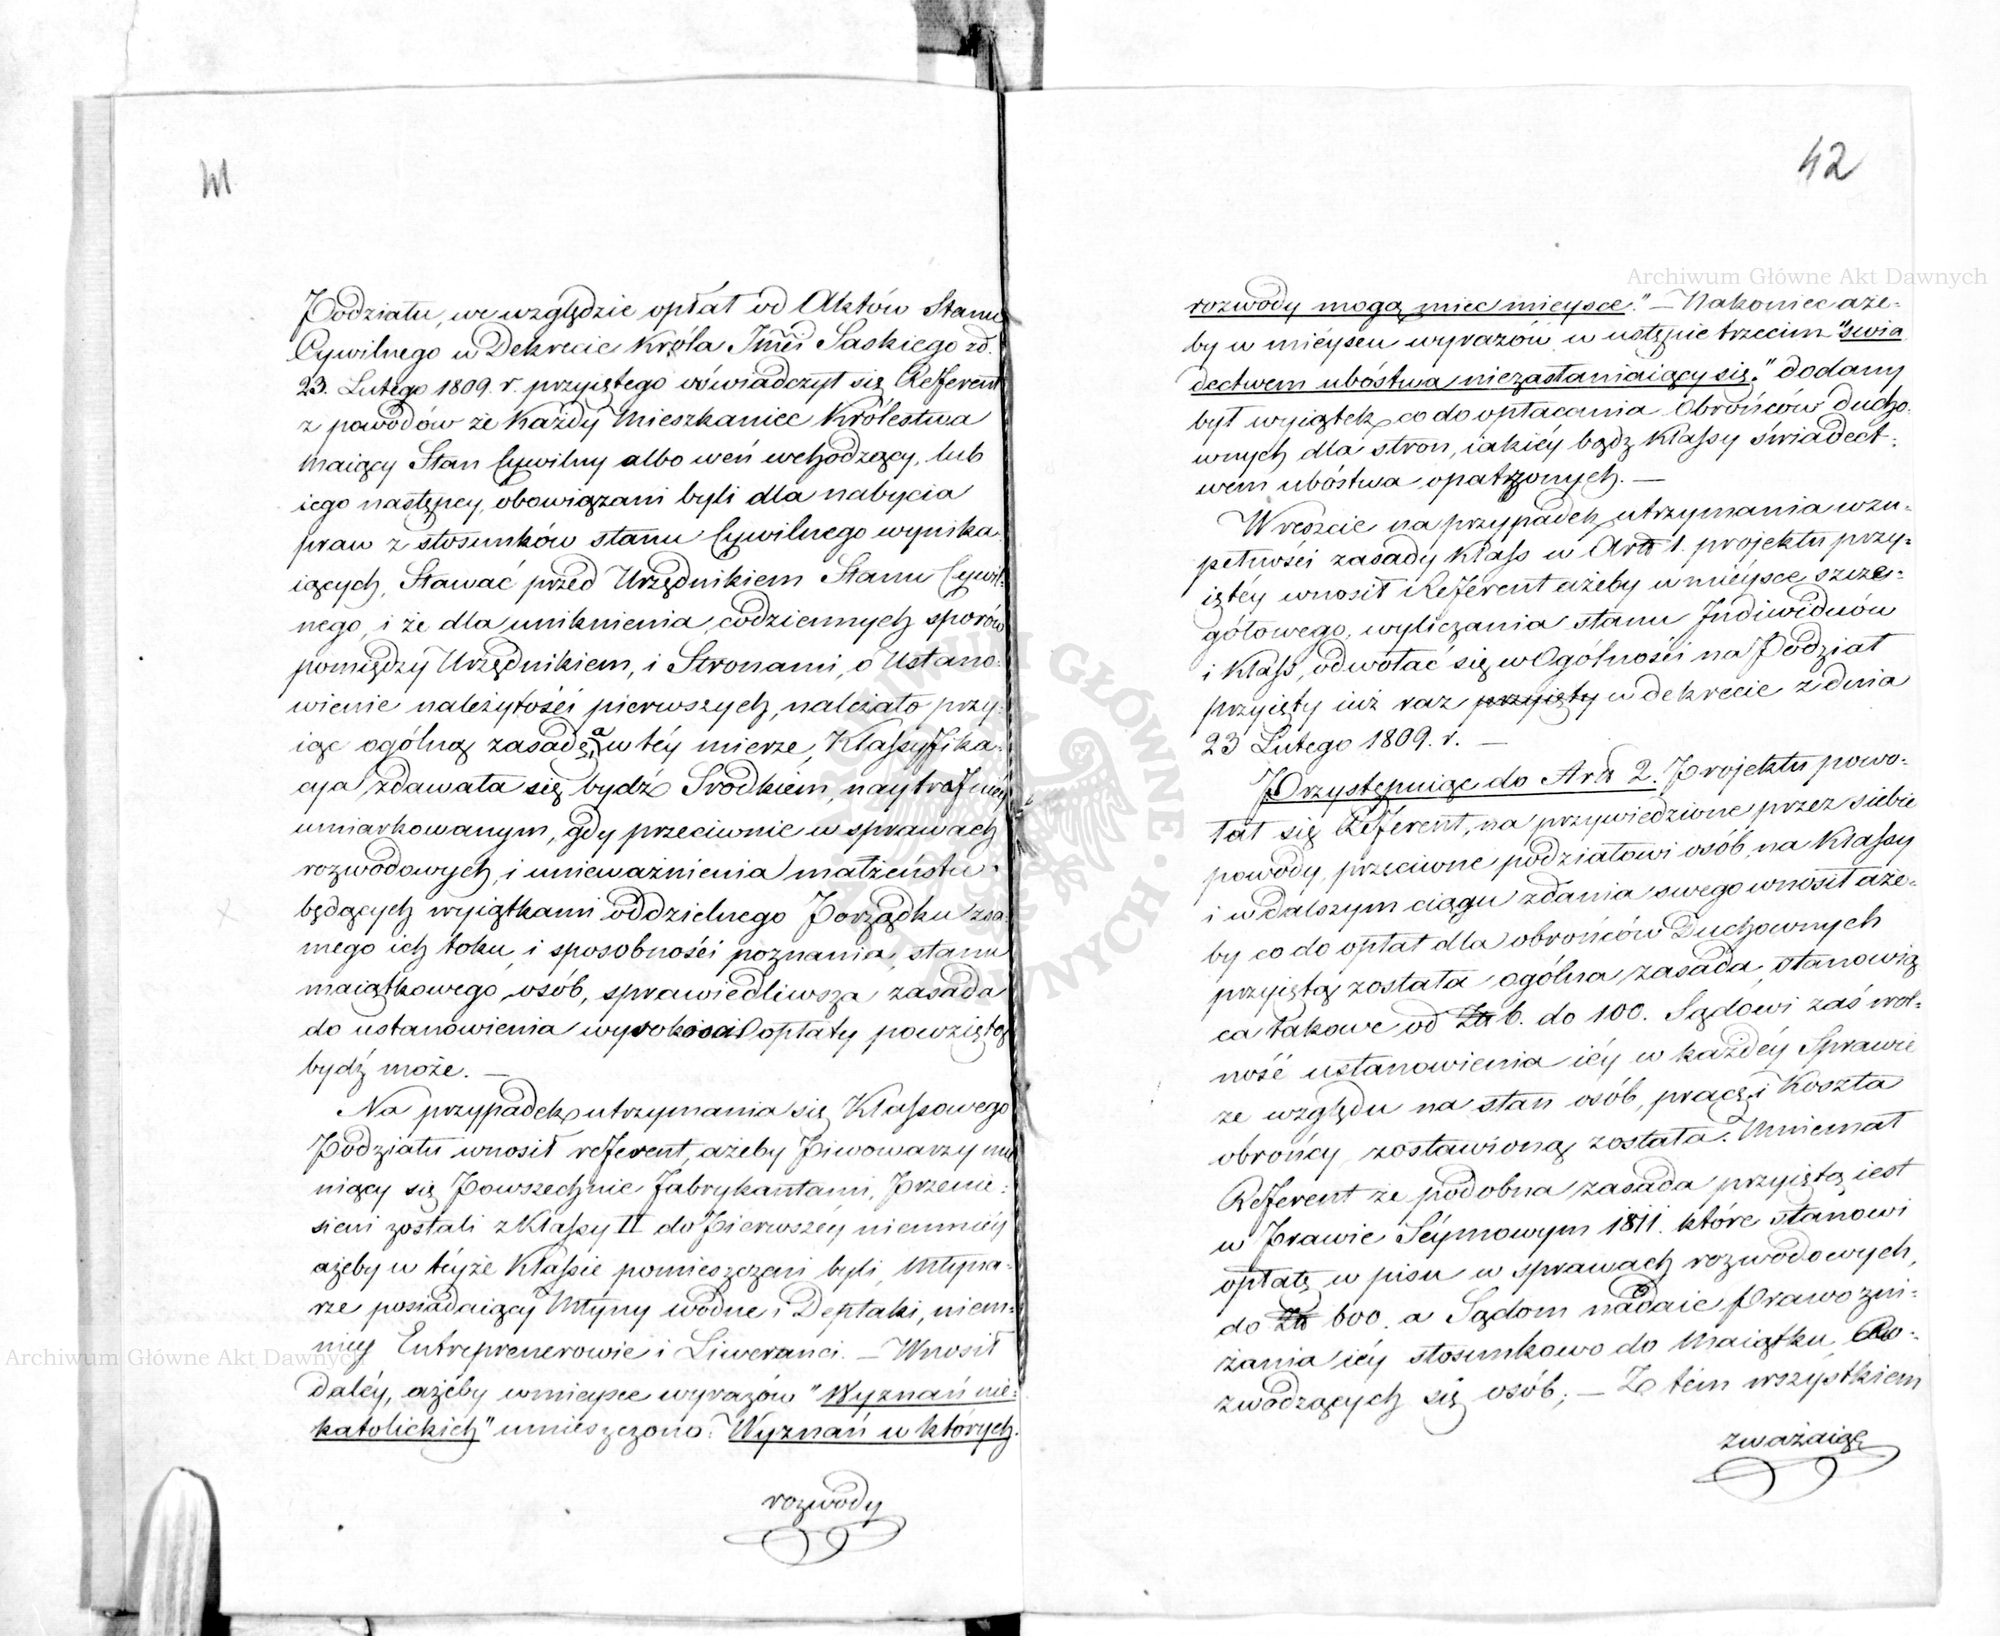 41
Podziału, we względzie opłat od Aktów Stanu
Cywilnego w Dekrecie Króla Jmci Saskiego zd.
23. Lutego 1809. r. przyiętego oświadczył się Referent
z powodów że Każdy Mieszkaniec Królestwa
maiący Stan Cywilny albo weń wchodzący, lub
iego następcy, obowiązani byli dla nabycia
praw z stosunków stanu Cywilnego wynika-
iących, Stawać przed Urzędnikiem Stanu Cywil-
nego, i że dla uniknienia codziennych sporów
pomiędzy Urzędnikiem, i Stronami, o Ustano-
wienie należytości pierwszych, należało przy-
iąć ogólną zasadę, a w téy mierze, Klassyfika-
cya zdawała się bydź Srodkiem, naytrafniéy
umiarkowanym, gdy przeciwnie w sprawach
rozwodowych, i unieważnienia małżeństw
będących wyiątkami oddzielnego Porządku z sa-
mego ich toku, i sposobności poznania, stanu
maiątkowego osób, sprawiedliwsza zasada
do ustanowienia wysokości opłaty powziętą
bydź może. —
Na przypadek utrzymania się Klassowego
Podziału wnosił referent, ażeby Piwowarzy mie
niący się Powszechnie Fabrykantami, Przenie-
sieni zostali z Klassy II do Pierwszéy niemniéy
ażeby w téyże Klassie pomieszczeni byli, Młyna-
rze posiadaiący Młyny wodne i Deptaki, niem-
niéy Entreprenerowie i Liweranci. — Wnosił
daléy, ażeby wmieysce wyrazów "Wyznań nie-
katolickich" umieszczono: Wyznań w których
rozwody
42
rozwody mogą mieć mieysce." — Nakoniec aże-
by w miéyscu wyrazów w ustępie trzecim "swia
dectwem ubóstwa niezasłaniaiący się." dodany
był wyiątek co do opłacania Obrońców ducho-
wnych dla stron, iakiéy bądź Klassy świadect-
wem ubóstwa opatrzonych. —
Wreszcie na przypadek utrzymania w zu-
pełności zasady Klass w Artt 1. projektu przy-
iętéy wnosił Referent ażeby w miéysce szcze-
gółowego, wyliczania stanu Indiwiduów
i Klass, odwołać się w Ogólności na Podział
przyięty iuż raz przyięty w dekrecie z dnia
23 Lutego 1809. r. —
Przystępuiąc do Artt 2. Projektu powo-
łał się Referent, na przywiedzione przez siebie
powody, przeciwne podziałowi osób, na Klassy
i w dalszym ciągu zdania swego wnosił aże-
by co do opłat dla obrońców Duchownych
przyiętą została ogólna zasada, stanowią
ca takowe od Zł 6. do 100. Sądowi zaś wol-
ność ustanowienia iéy w każdéy Sprawie
ze względu na stan osób, pracę i Koszta
obrońcy zostawioną została. Mniemał
Referent że podobna zasada przyiętą iest
w Prawie Séymowym 1811. które stanowi
opłatę w pisu w sprawach rozwodowych,
do Zł 600. a Sądom nadaie Prawo zni-
żania iéy stosunkowo do Maiątku Ro-
zwodzących się osób; — Z tém wszystkiem
zważaiąc
Archiwum Główne Akt Dawnych
Archiwum Główne Akt Dawnych